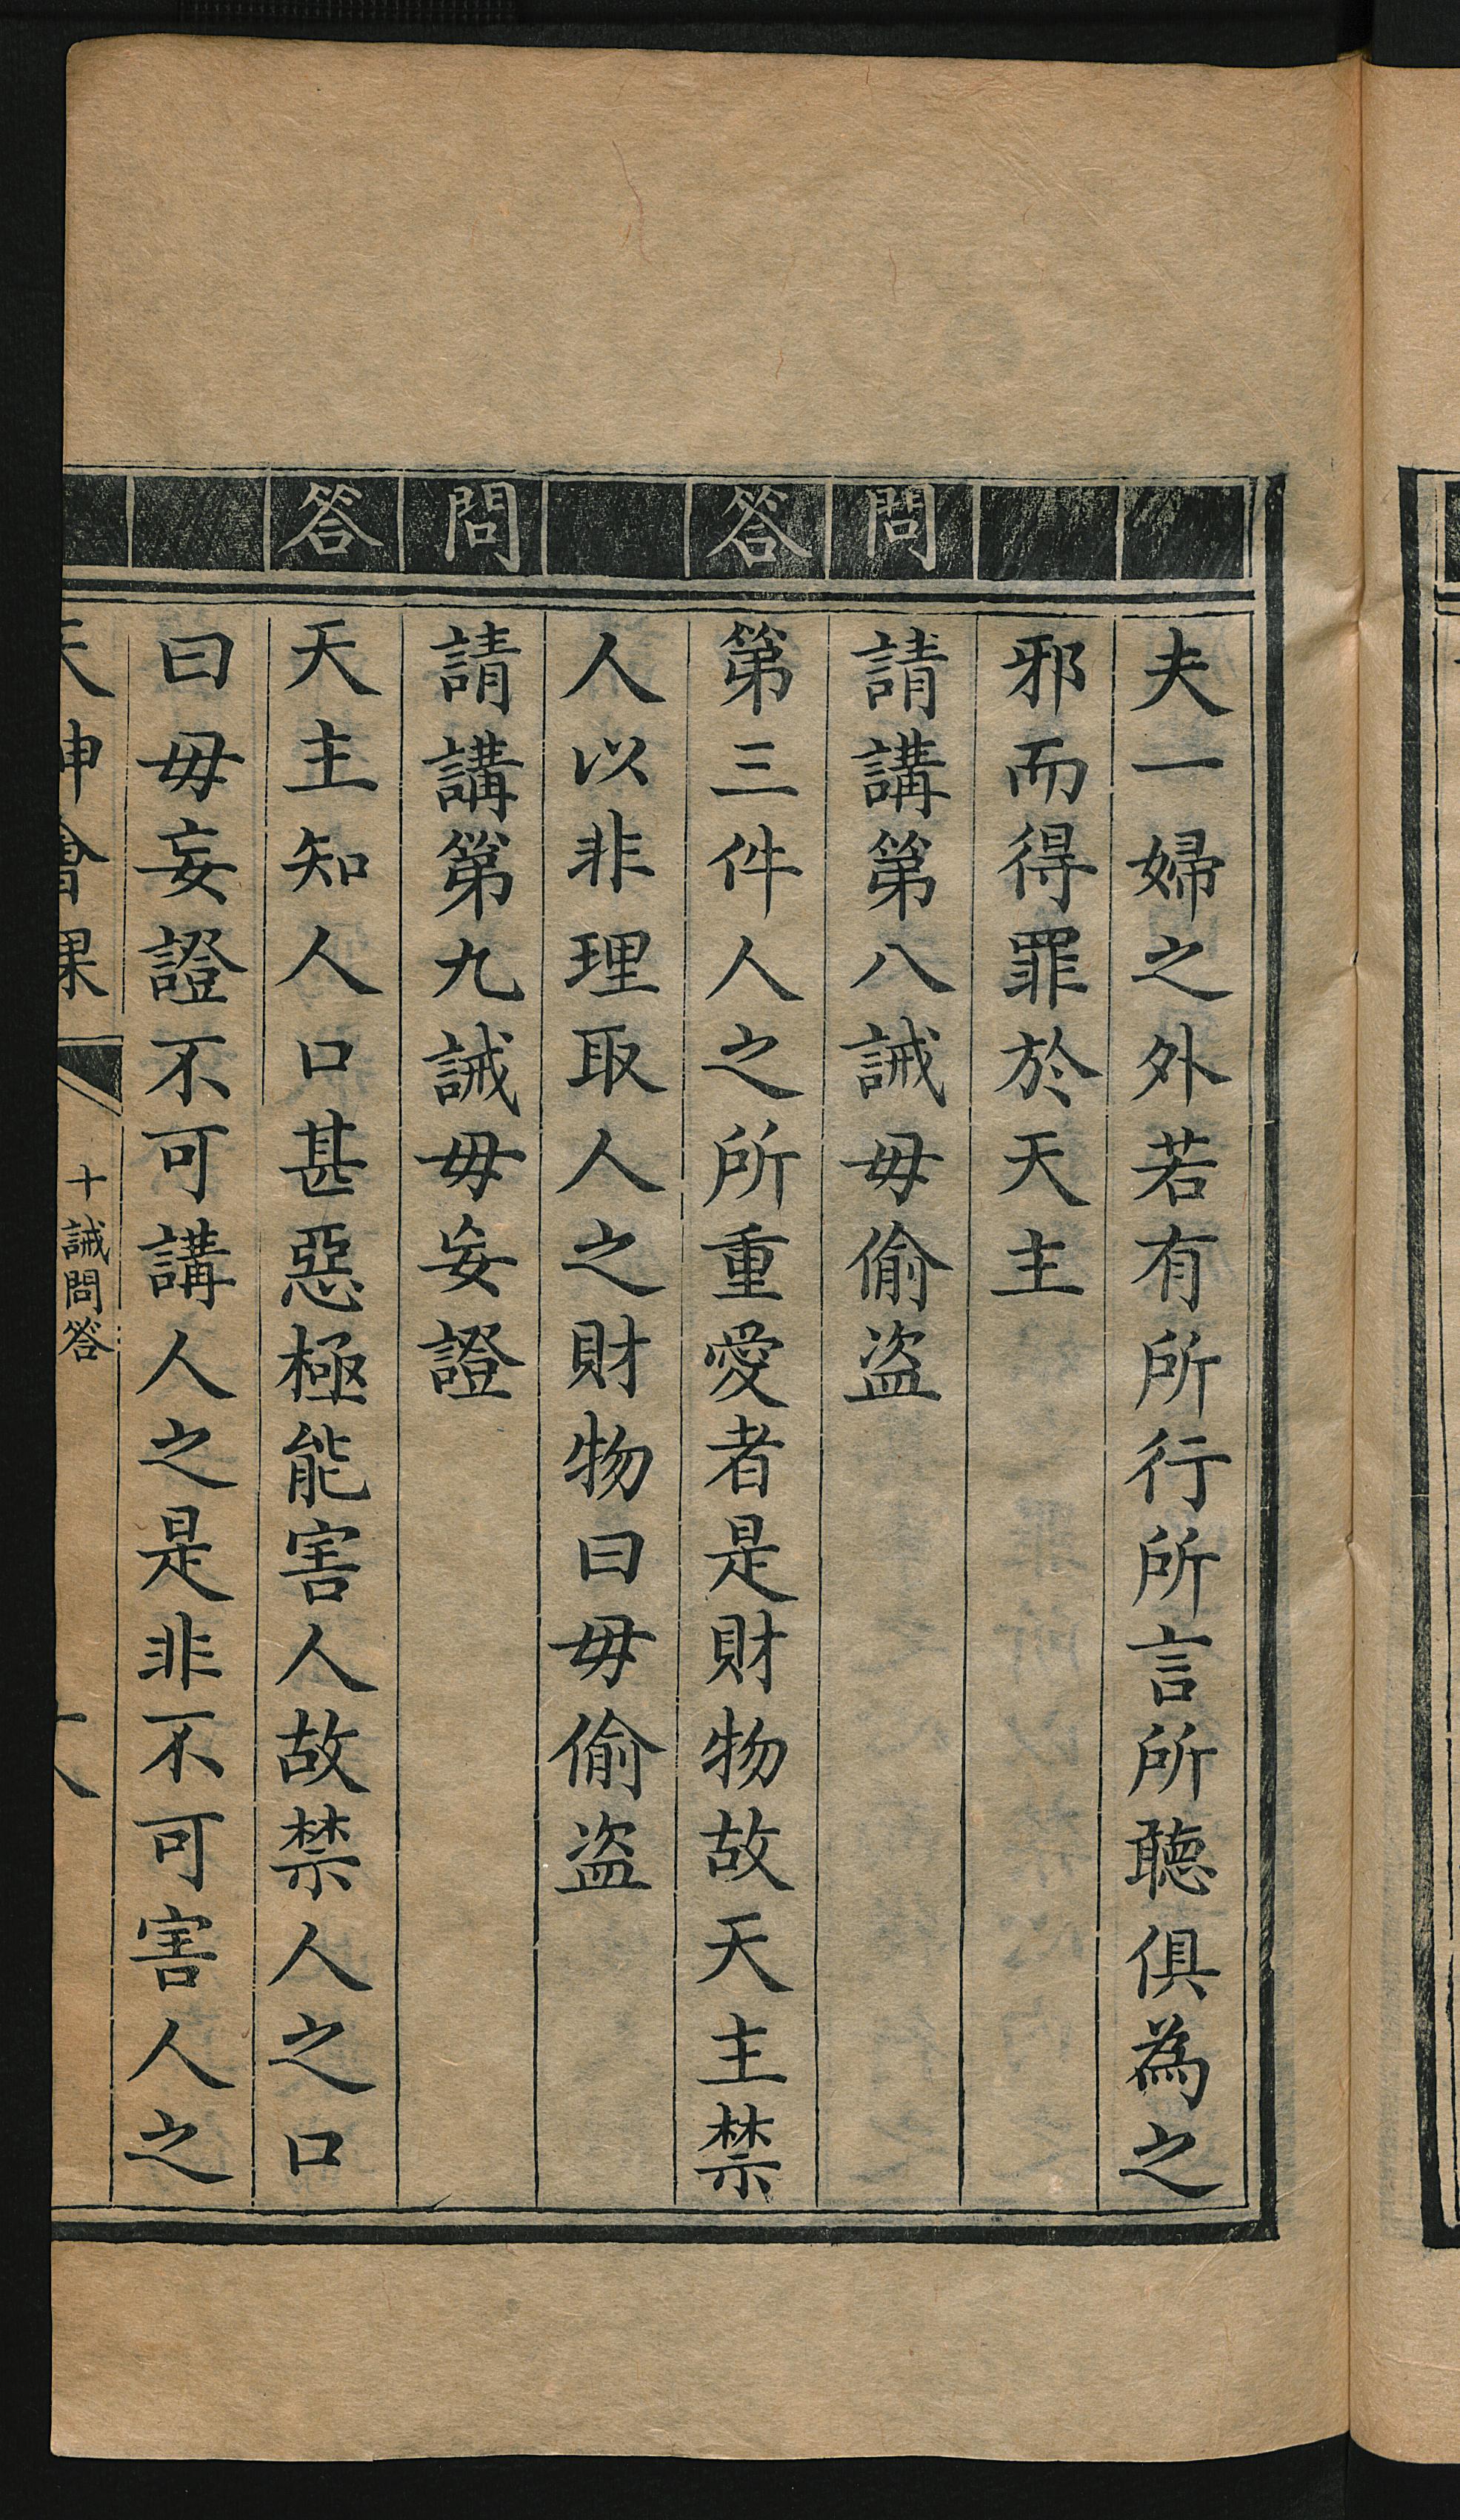 夫一婦之外若有所行所言所聽俱為之
邪而得罪於天主
問
請講第八誡毋偷盗
答
第三件人之所重愛者是財物故天主禁
人以非理取人之財物曰毋偷盗
問
請講第九誡毋妄證
答
天主知人口甚惡極能害人故禁人之口
曰毋妄證不可講人之是非不可害人之
天神會課
十誡問答